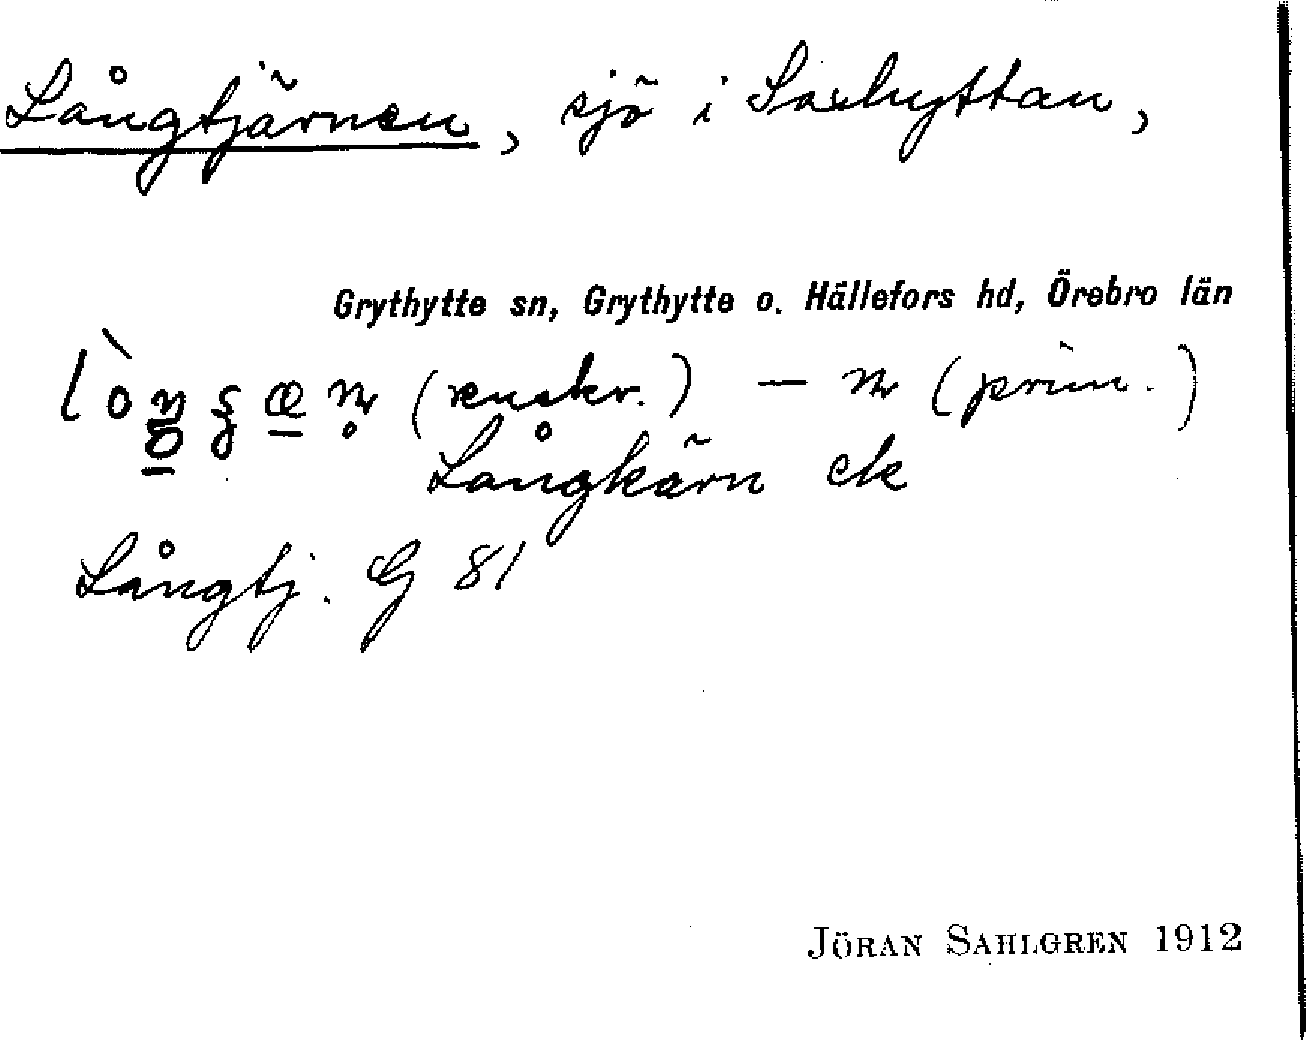 Långtjärnen, sjö i Saxhyttan,
Grythytte sn, Grythytte o. Hällefors hd, Örebro län
(renskr.) — (prim.)
Långkärn ek
Långtj. G 81
JÖRAN SAHLGREN 1912